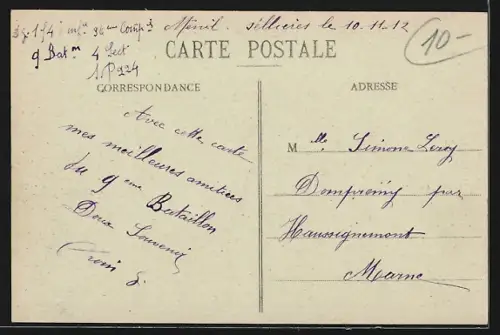 174 inf 34 Comp
9 Bat on 4 Sect
1 P 224
Ménil. sellières le 10-11-12
10-
CARTE POSTALE
CORRESPONDANCE
Avec cette carte
mes meilleures amitiées
du 9 eme Bataillon
Doux Souvenir
ADRESSE
M lle Simone Leroy
Dompremy par
Haussignemont
Marne